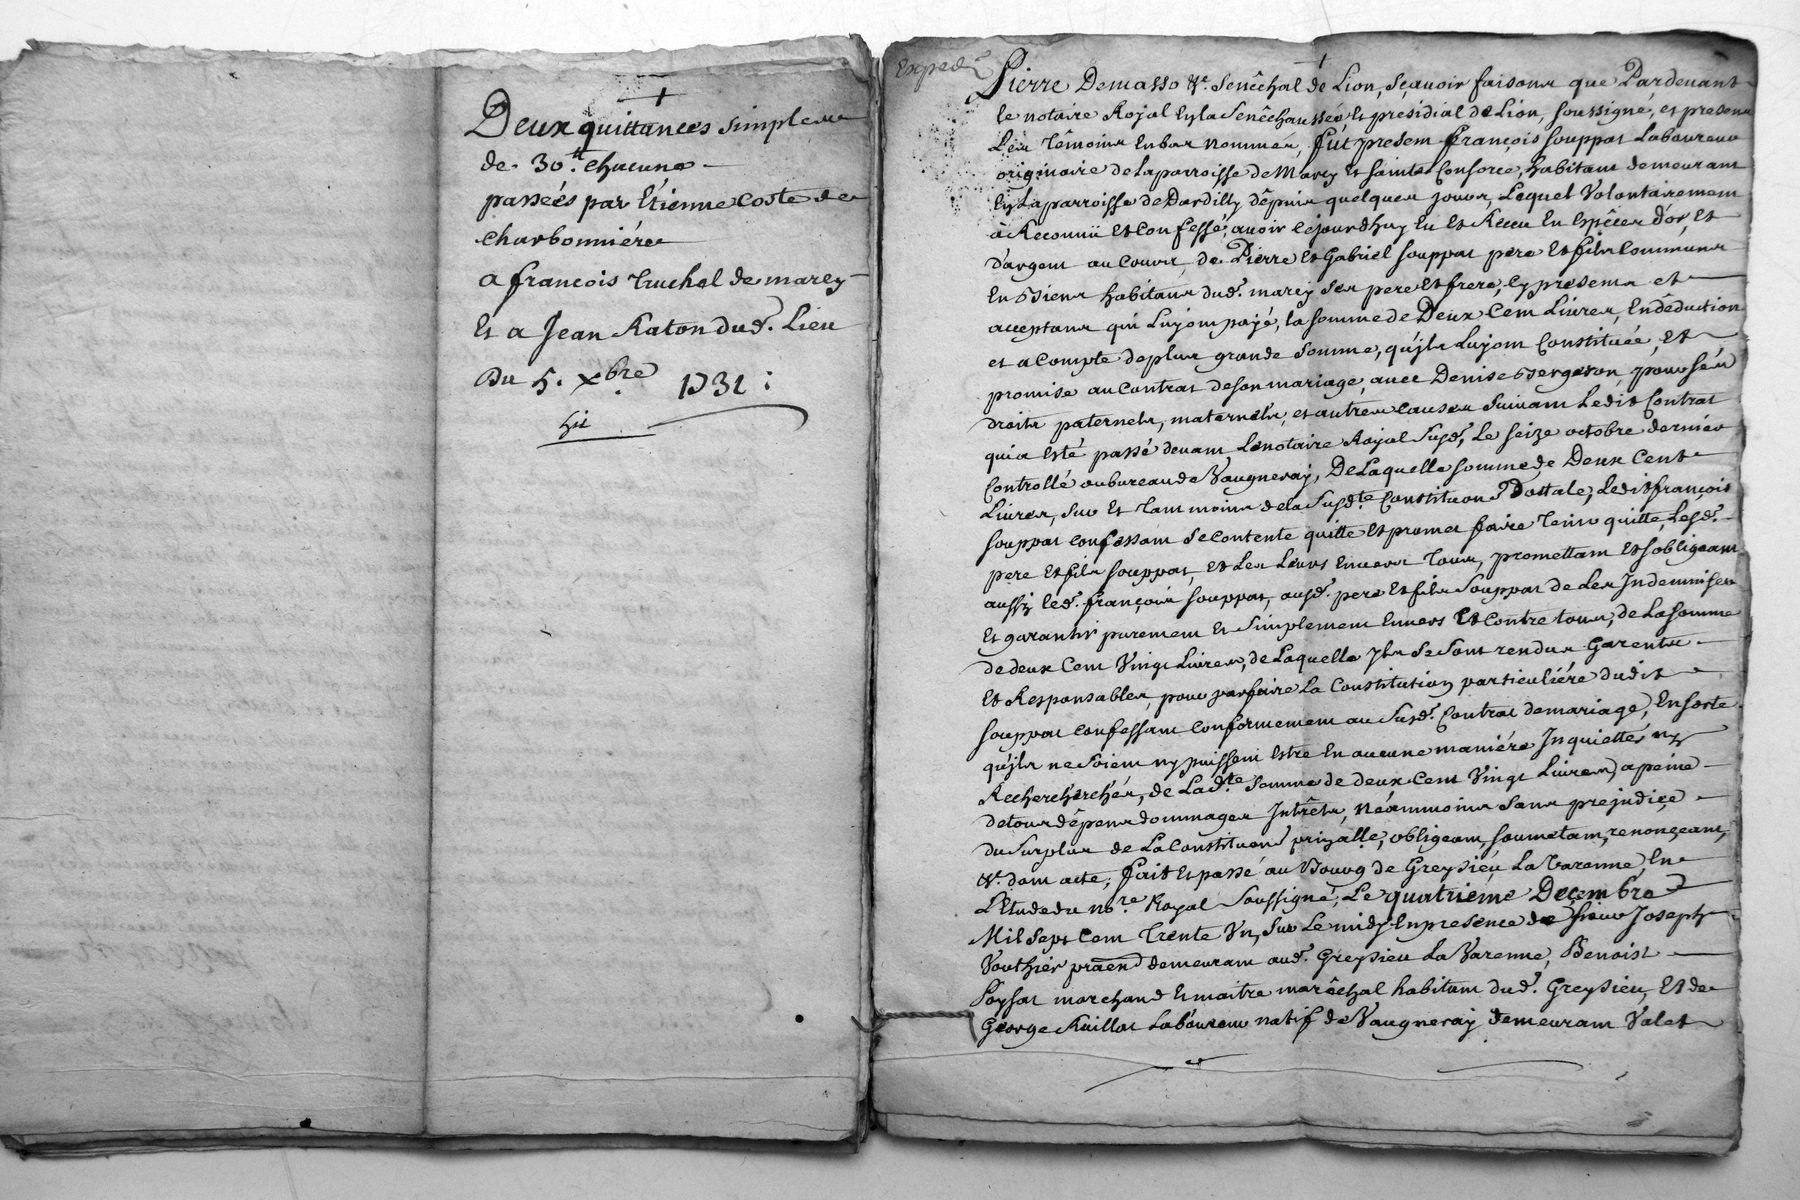 Deux quittances simples
de 30ᵗᵗ. chacune
passées par Etienne Coste de
charbonniéres
a françois truchel de marcy
Et a Jean Raton dud. Lieu
Du 5. xbre. 1731 :
Exped.
Pierre Demasso &c. Senêchal de Lion, Sçavoir faisons que Pardevant
le notaire Royal En la Senêchaussée Et presidial de Lion, soussigné, et presens
Les Têmoins En bas nommés, fût present françois souppat Laboureur
originaire de la parroisse de Marcy Et Sainte Consorce, habitant demeurant
En La parroisse de Dardilly dêpuis quelques jours, Lequel Volontairement
à Reconnû Et Confessé, avoir ce jourdhuy Eu Et Receu En Espêces d'or, Et
d'argent au Cours, de Pierre Et Gabriel souppat pere Et fils Communs
En Biens habitans dud. marcy Ses pere Et frere, cy presens et
acceptans qui Luy ont payé, la somme de Deux Cent Livres, En dêduction
et a Compte de plus grande Somme, qu'jls Luy ont Constituée, Et
promise au Contrat de son mariage, avec Denise Bergeron, pour sés
droits paternels, maternels, et autres causes Suivant Ledit Contrat
qui a Esté passé devant Le notaire Royal Susd. Le Seize octobre dernier
Controllé au bureau de Vaugneray, De Laquelle somme de Deux Cent
Livres, Sur Et Tant moins de la Susdte. Constituon Dottale, Ledit françois
souppat confessant Se contente quitte Et promet faire Tenir quitte, Lesd.
pere Et fils souppat, Et Les Leurs Envers Tous, promettant Et s'obligeant
aussy led. françois souppat, ausd. pere Et fils Souppat de Les Indemniser
Et garantir purement Et Simplement Envers Et Contre tous, de La somme
de deux Cent Vingt Livres, de Laquelle Jls Se Sont rendus Garents
Et Responsables, pour parfaire La Constitution particuliére dudit
souppat confessant conformement au Susd. Contrat de mariage, En sorte
qu'jls ne Soient ny puissent Estre En aucune maniére Inquiettés ny
Recherchérchés, de Ladte. Somme de deux Cent Vingt Livres, a peine
de tous dêpens dommages Intrêts, Néammoins Sans prejudice
du Surplus de La Constituon prinalle, obligeant, soumetant, renonçeant,
&c. dont acte, fait Et passé au Bourg de Greysieu La Varenne, En
L'Etude du nore. Royal Soussigné, Le quatrieme Decembre
Mil Sept Cent Trente Un, Sur Le midy En presence de sieur Joseph
Vouthier praen demeurant aud. Greysieu La Varenne, Benoist
Poysat marchand Et maitre marêchal habitant dud. Greysieu, Et de
George Ruillat Labóureur natif de Vaugneray demeurant Valet